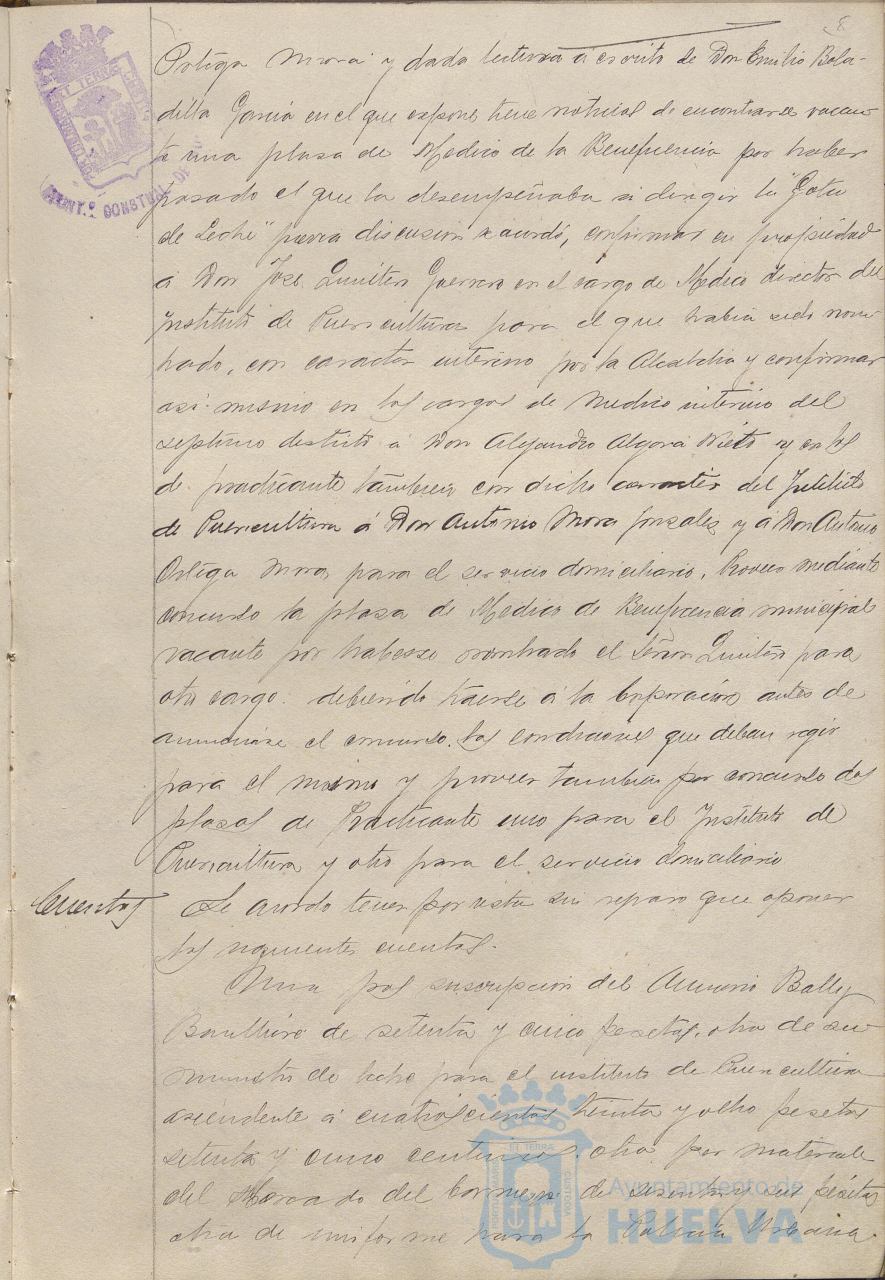 8
Ortega Mora y dada lectura á escrito de Don Emilio Bola-
dilla García en el que expone tiene noticias de encontrarse vacan-
te una plaza de Medico de la Beneficencia por haber
pasado el que la desempeñaba a dirigir la "Gota
de Leche" previa discusion se acordó, confirmar en propiedad
á Don José Quintero Guerrero en el cargo de Medico director del
Instituto de Puericultura para el que habia sido nom-
brado, con caracter interino por la Alcaldia y confirmar
asi mismo en los cargos de medico interino del
septimo distrito á Don Alejandro Algora Nieto y en los
de practicante tambien con dicho caracter del Instituto
de Puericultura á Don Antonio Mora Gonzalez y á Don Antonio
Ortega Mora para el servicio domiciliario. Proveer mediante
concurso la plaza de Medico de Beneficencia municipal
vacante por haberse nombrado el Señor Quintero para
otro cargo. debiendo traerse á la Corporación antes de
anunciarse el concurso. las condiciones que deban regir
para el mismo y proveer tambien por concurso dos
plazas de Practicante uno para el Instituto de
Puericultura y otro para el servicio domiciliario
Cuentas
Se acordó tener por vista sin reparo que oponer
las siguientes cuentas.
Una por suscripcion del Anuario Bally
Bailliere de setenta y cinco pesetas, otra de su-
ministro de leche para el instituto de Puericultura
ascendente á cuatroscientas treinta y ocho pesetas
setenta y cinco centimos. otra por materiale
del Mercado del Carmen de sesenta y seis pesetas
otra de uniforme para la Policia Urbana
AYUNT.º CONSTNAL DE
ET TERRA
CUSTODIA
PORTUS MARIS
Ayuntamiento de
HUELVA